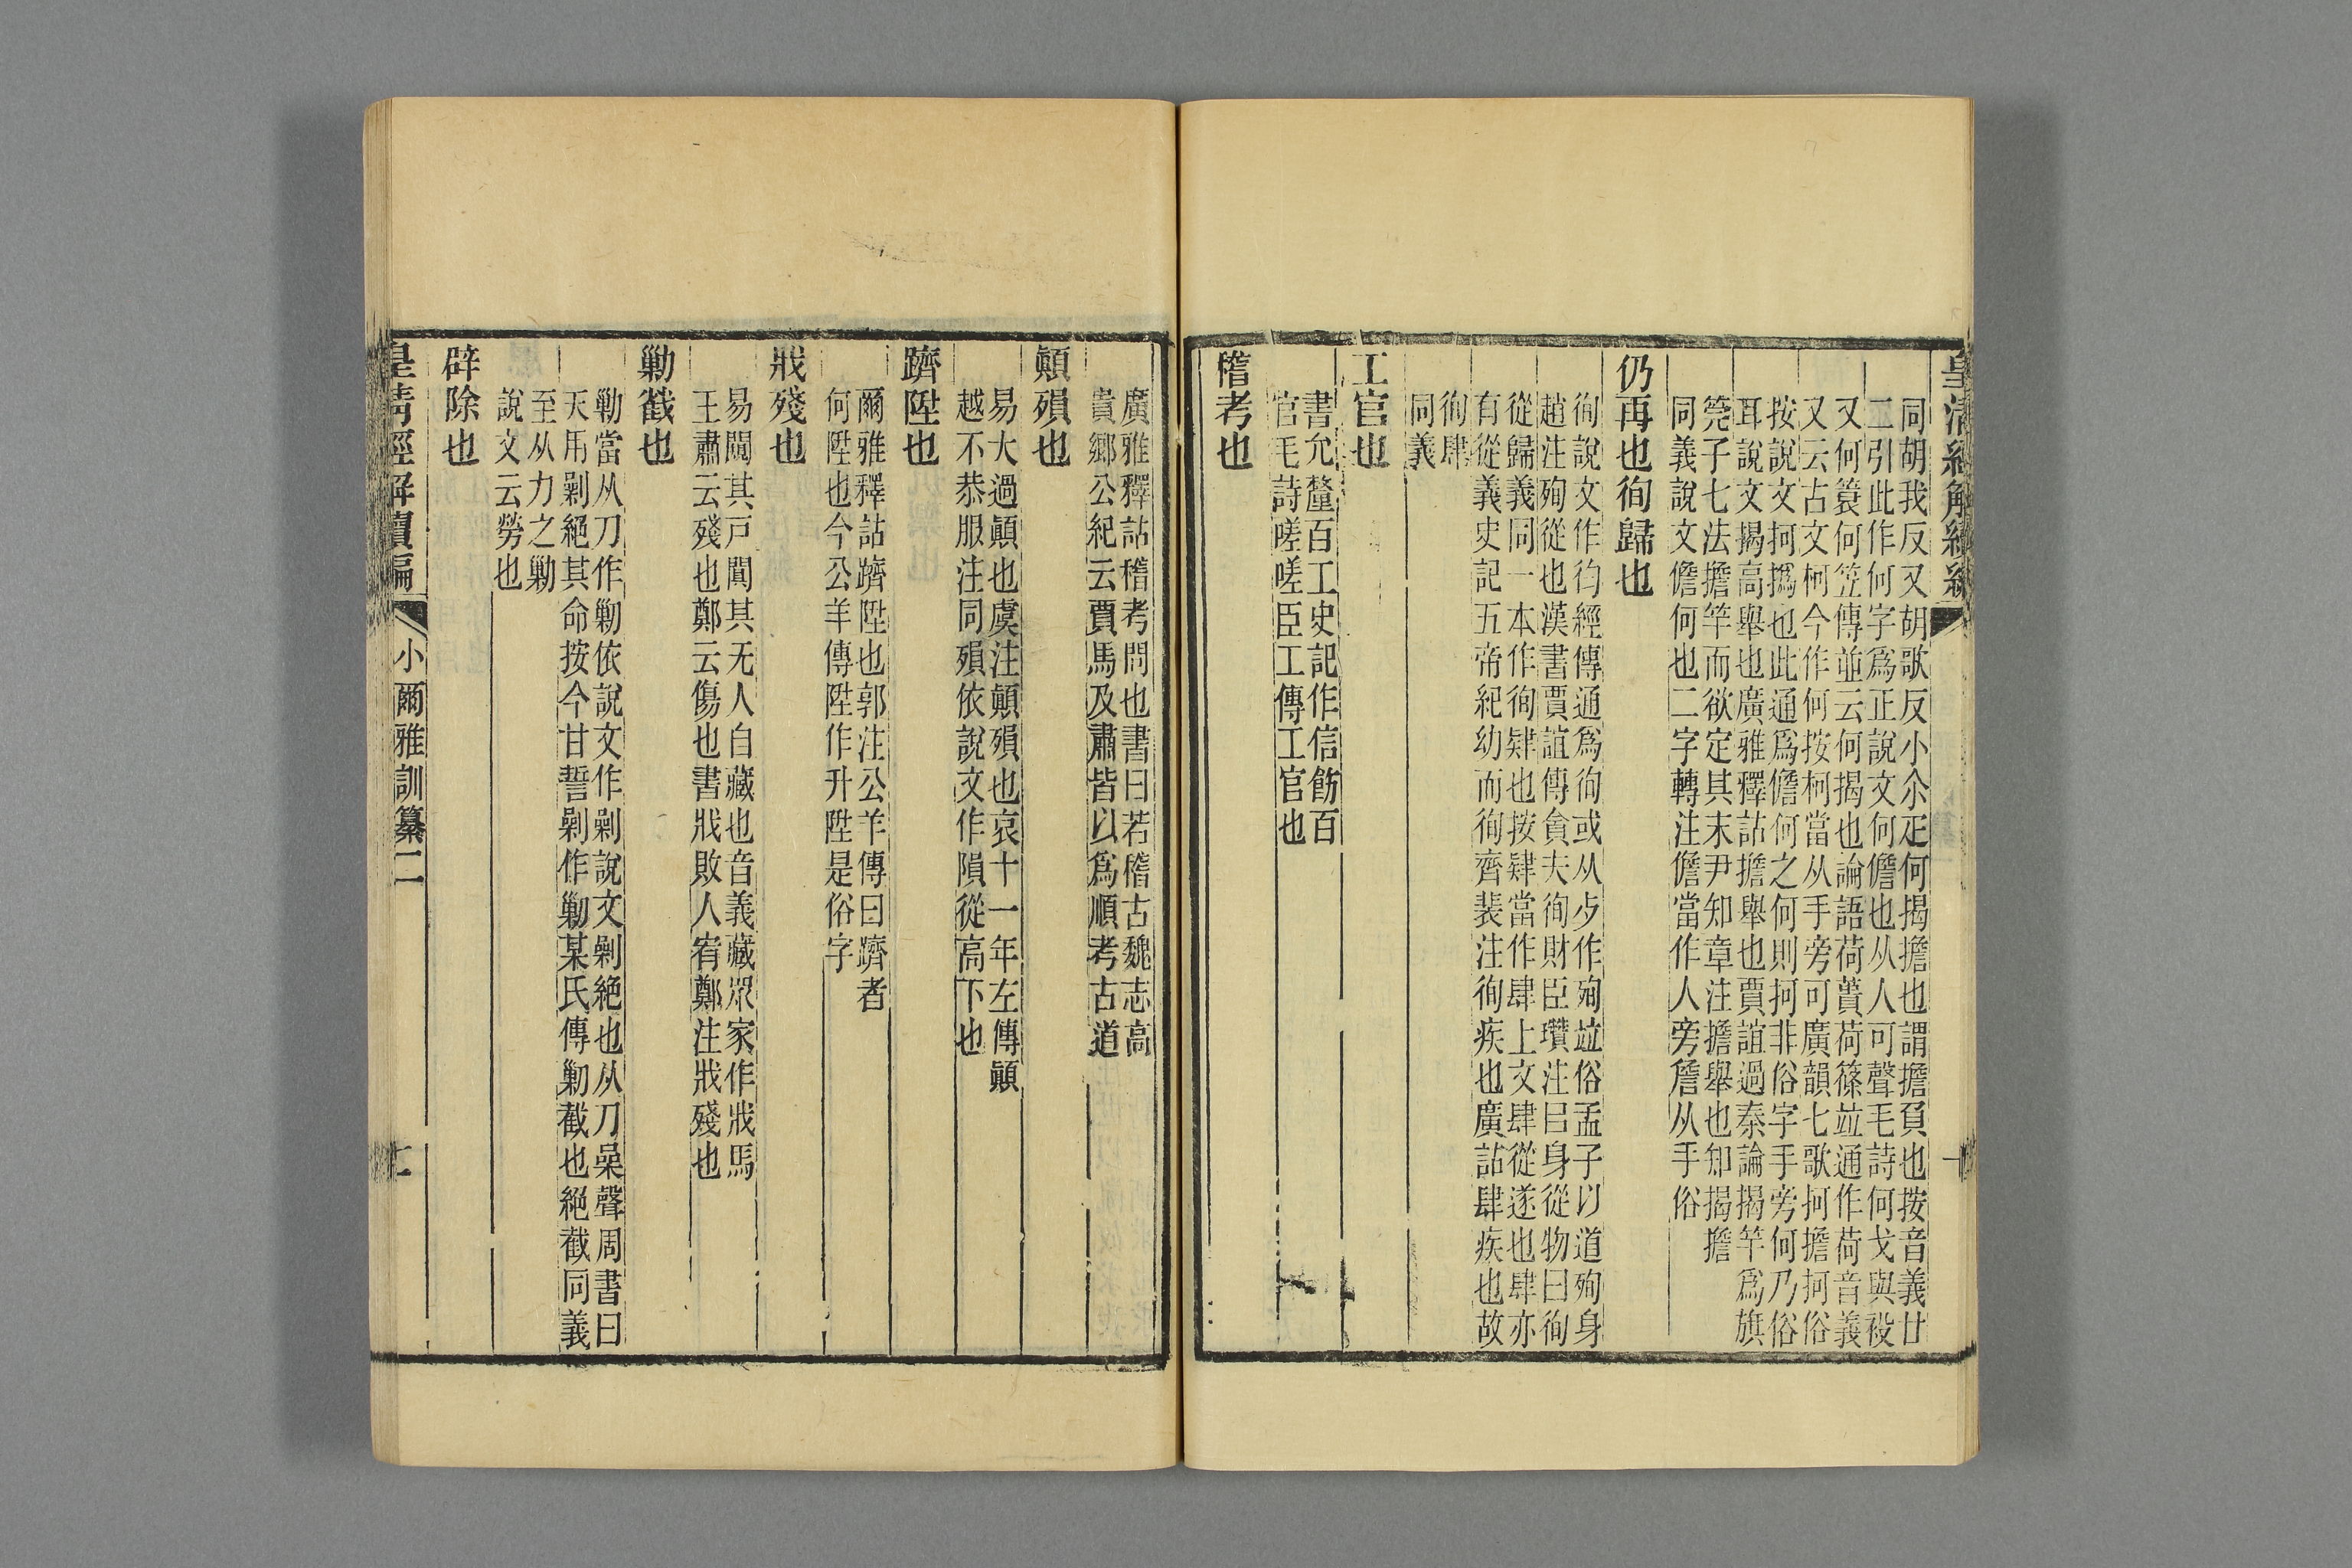 皇清經解續編
同胡我反又胡歌反小尒疋何揭擔也謂擔負也按音義廿
二引此作何字爲正說文何儋也从人可聲毛詩何戈與祋
又何簑何笠傳並云何揭也論語荷蕢荷篠竝通作荷音義
又云古文柯今作何按柯當从手旁可廣韻七歌抲擔抲俗
按說文抲撝也此通爲儋何之何則抲非俗字手旁何乃俗
耳說文揭高舉也廣雅釋詁擔舉也賈誼過秦論揭竿爲旗
筦子七法擔竿而欲定其末尹知章注擔舉也知揭擔
同義說文儋何也二字轉注儋當作人旁詹从手俗
仍再也徇歸也
徇說文作彴經傳通爲徇或从歹作殉竝俗孟子以道殉身
趙注殉從也漢書賈誼傳貪夫徇財臣瓚注曰身從物曰徇
從歸義同一本作徇肄也按肄當作肆上文肆從遂也肆亦
有從義史記五帝紀幼而徇齊裴注徇疾也廣詁肆疾也故
徇肆
同義
工官也
書允釐百工史記作信飭百
官毛詩嗟嗟臣工傳工官也
稽考也
廣雅釋詁稽考問也書曰若稽古魏志高
貴鄉公紀云賈馬及肅皆以爲順考古道
顚殞也
易大過顚也虞注顚殞也哀十一年左傳顚
越不恭服注同殞依說文作隕從高下也
躋陞也
爾雅釋詁躋陞也郭注公羊傳曰躋者
何陞也今公羊傳陞作升陞是俗字
戕殘也
易闚其戸闃其无人自藏也音義藏眾家作戕馬
王肅云殘也鄭云傷也書戕敗人宥鄭注戕殘也
勦截也
勦當从刀作剿依說文作剿說文剿絕也从刀喿聲周書曰
天用剿絕其命按今甘誓剿作勦某氏傳勦截也絕截同義
至从力之勦
說文云勞也
辟除也
皇清經解續編
小爾雅訓纂二